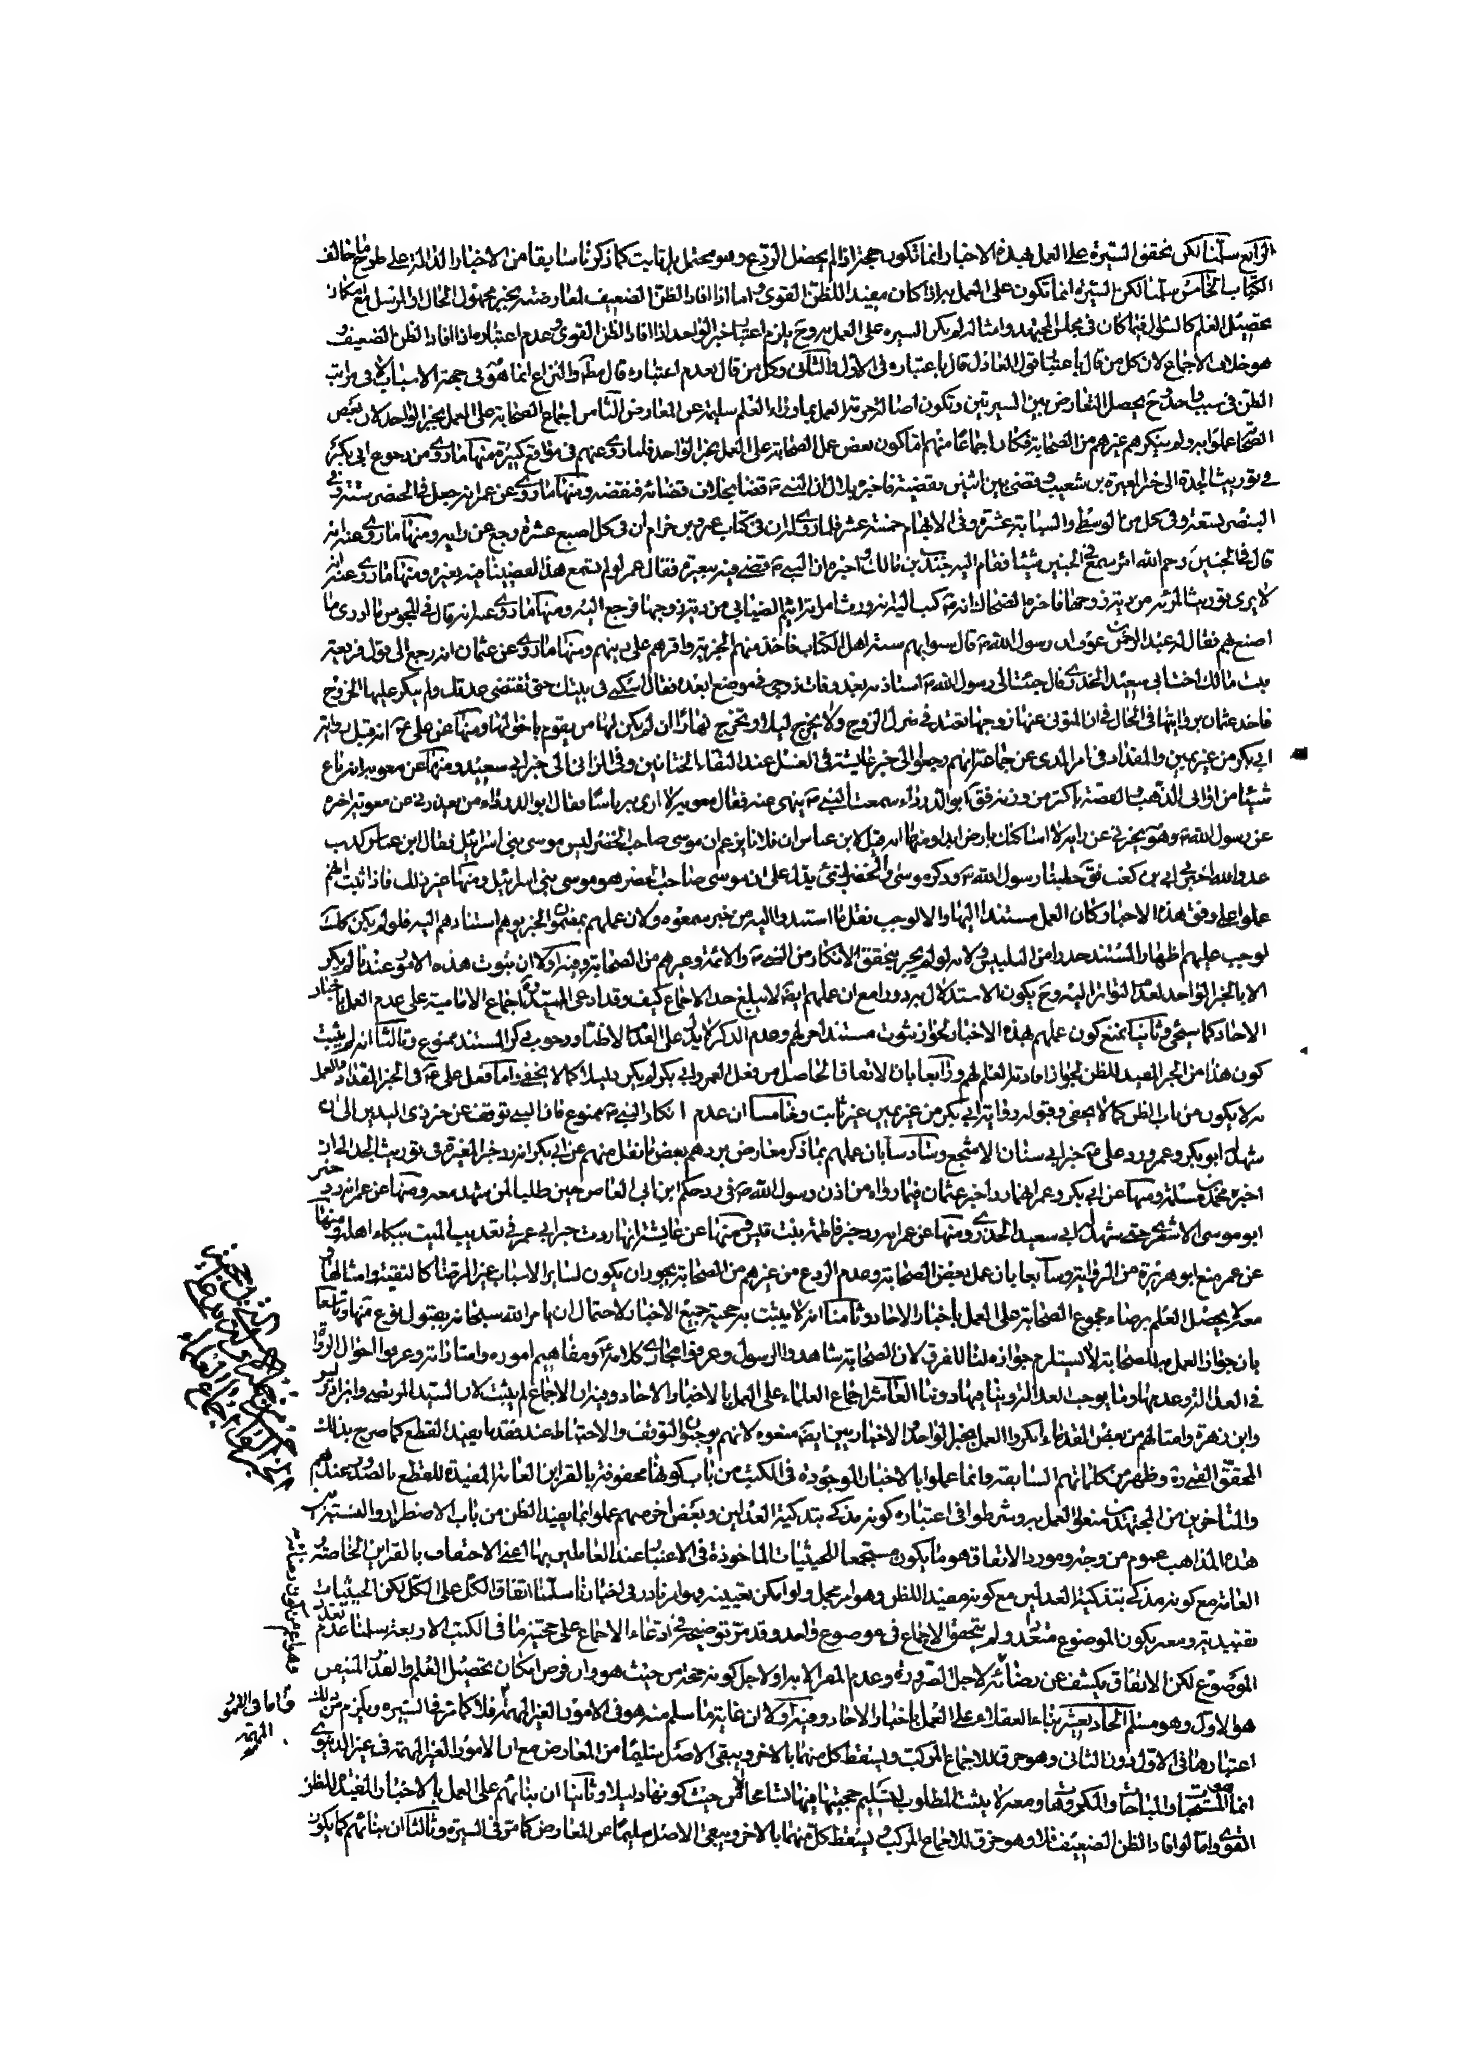 الرابع سلمنا لكن تحقق السيرة على العمل بهذه الاخبار انما تكون حجة اذا لم يحصل الردع وهو محتمل بل ثابت كما ذكرنا سابقا من الاخبار الدالة على طرح ما خالف
الكتاب الخامس سلمنا لكن السيرة انما تكون على العمل به اذا كان مفيدا للظن القوى واما اذا افاد الظن الضعيف لمعارضته بخبر مجهول الحال او المرسل مع امكان
تحصيل العلم كالسؤال فيما كان فى مجلس المجتهد وامثاله لم يكن السيرة على العمل به وح يلزم اعتبار خبر الواحد اذا افاد الظن القوى وعدم اعتباره ما اذا افاد الظن الضعيف
هو خلاف الاجماع لان كل من قال باعتبار قول العادل قال باعتباره فى الاول والثانى وكل من قال بعدم اعتباره قال مطلقا والنزاع انما هو فى حجية الاسباب لا فى مراتب
الظن فى سبب واحد وح يحصل التعارض بين السيرتين وتكون اصالة حرمة العمل بما وراء العلم سليمة عن المعارض الثامن اجماع الصحابة على العمل بخبر الواحد لان بعض
الصحابة عملوا به ولم ينكر هم غيرهم من الصحابة فكان اجماعا منهم اما كون بعض عمل الصحابة على العمل بخبر الواحد فلما روى عنهم فى مواقع كثيرة منها ما روى من رجوع ابى بكر
فى توريث الجدة الى خبر المغيرة بن شعبة وقضى بين اثنين بقضية فاخبره بلال ان النبى ص قضا بخلاف قضائه فنقضه ومنها ما روى عن عمر انه جعل فى الخنصر ستة وفى
البنصر تسعة وفى كل من الوسطى والسبابة عشرة وفى الابهام خمسة عشر فلما روى له ان فى كتاب عمرو بن حزام ان فى كل اصبع عشرة رجع عن رايه ومنها ما روى عنه انه
قال فى الجنين رحم الله امرء سمع فى الجنين شيئا فقام اليه بن مالك واخبره ان النبى ص قضى فيه بغرة فقال عمر لو لم نسمع هذا لقضينا فيه بغيره ومنها ما روى عنه انه
لا يرى توريث المرئة من دية زوجها فاخبره الضحاك انه ص كتب اليه ان يورث امراة اشيم الضبابى من دية زوجها فرجع اليه ومنها ما روى عنه انه قال فى المجوس ما ادرى ما
اصنع بهم فقال له عبد الرحمن بن عوف ان رسول الله ص قال سنوا بهم سنة اهل الكتاب فاخذ منهم الجزية واقرهم على دينهم ومنها ما روى عن عثمان انه رجع الى قول فريعة
بنت مالك اخت ابى سعيد الخدرى قال جئت الى رسول الله ص استاذنه بعد وفات زوجى فى موضع العدة فقال اسكنى فى بيتك حتى تنقضى عدتك ولم ينكر عليها الخروج
فاخذ عثمان بروايتها فى الحال فى ان المتوفى عنها زوجها تعتد فى منزل الزوج ولا يخرج ليلا وتخرج نهارا ان لم يكن لها من يقوم باحوالها ومنها عن على ع انه قبل رواية
ابى بكر من غير يمين والمقداد فى امر المذى عن جماعة انهم رجعوا الى خبر عايشة فى الغسل عند التقاء الختانين وفى الربا الى خبر ابى سعيد ومنها عن معوية انه باع
شيئا من اوانى الذهب والفضة باكثر من وزنه فق ابو الدرداء سمعت النبى ص ينهى عنه فقال معوية لا ارى به باسا فقال ابو الدرداء من يعذرنى من معوية اخبره
عن رسول الله ص وهو يخبرنى عن رايه لا اساكنك بارض ابدا ومنها انه قيل لابن عباس ان فلانا يزعم ان موسى صاحب الخضر ليس موسى بنى اسرائيل فقال ابن عباس كذب
عدو الله اخبرنى ابى بن كعب فق خطبنا رسول الله ص وذكر موسى والخضر بشئ يدل على ان موسى صاحب الخضر هو موسى بنى اسرائيل ومنها غير ذلك فاذا ثبت انهم
عملوا على وفق هذه الاخبار وكان العمل مستندا اليها والا لوجب نقل ما استندوا اليه من خبر سمعوه ولان عملهم بمضمون الخبر يوهم استنادهم اليه فلو لم يكن كذلك
لوجب عليهم اظهار المستند حذرا من التلبيس ولانه لو لم يجز لتحقق الانكار من النبى ص والائمة وغيرهم من الصحابة وفيه اولا ان ثبوت هذه الامور عندنا لم يكن
الا بالخبر الواحد لعدم التواتر اليه وح يكون الاستدلال به دورا مع ان عملهم ايضا لا يبلغ حد الاجماع كيف وقد ادعى السيد اجماع الامامية على عدم العمل باخبار
الاحاد كما سيجئ وثانيا نمنع كون عملهم بهذه الاخبار لجواز ثبوت مستند اخر لهم وعدم الذكر لا يدل على العدم الاظنا ووجوب ذكر المستند ممنوع وثالثا انه لم يثبت
كون هذا من الخبر المفيد للظن لجواز افادته العلم لهم ورابعا بان الاتفاق الحاصل من فعل العمر وابى بكر لم يكن دليلا كما لا يخفى واما فعل على ع فى الخبر المقداد فالعمل
به لا يكون من باب الظن كما لا يخفى وقبوله رواية ابى بكر من غير يمين غير ثابت وخامسا ان عدم انكار النبى ص ممنوع فان النبى توقف عن خبر ذى اليدين الى ان
شهد له ابو بكر وعمر ورد على ع خبر ابى سنان الاشجع وسادسا بان عملهم بما ذكر معارض بردهم بعض ما نقل منهم عن ابى بكر انه رد خبر المغيرة فى توريث الجدة الى ان
اخبره محمد بن مسلمة ومنها عن ابى بكر وعمر انهما ردا خبر عثمان فيما رواه من اذن رسول الله ص فى رد حكم ابن ابى العاص حين طلبا لمن شهد معه ومنها عن عمر انه رد خبر
ابو موسى الاشعرى حتى شهد له ابى سعيد الخدرى ومنها عن عمر انه رد خبر فاطمة بنت قيس ومنها عن عايشة انها ردت خبر ابى عمر فى تعذيب الميت ببكاء اهله ومنها
عن عمر منع ابو هريرة من الرواية وسابعا بان عمل بعض الصحابة وعدم الردع من غيرهم من الصحابة يجوز ان يكون لساير الاسباب غير الرضا كالتقية وامثالها و
معه لا يحصل العلم برضاء مجموع الصحابة على العمل باخبار الاحاد وثامنا انه لا يثبت به حجية جميع الاخبار لاحتمال ان يامر الله سبحانه بقبول نوع منها وتاسعا
بان جواز العمل به للصحابة لا يستلزم جوازه لنا للفرق لان الصحابة شاهدوا الرسول وعرفوا مجارى كلامه ومفاهيم اموره واشاراته وعرفوا احوال الرواة
فى العدالة وعدمها وما يوجب العدالة وما ينافيها دوننا العاشر اجماع العلماء على العمل بالاخبار الاحاد وفيه ان الاجماع لم يثبت لان السيد المرتضى وابن ادريس
وابن زهرة وامثالهم من بعض القدماء انكروا العمل بخبر الواحد والاخباريين ايضا منعوه لانهم يوجبون التوقف والاحتياط عند فقد ما يفيد القطع كما صرح بذلك
المحقق القمى ره وظهر من كلماتهم السابقة وانما عملوا بالاخبار الموجودة فى الكتب من باب كونها محفوفة بالقراين العامة المفيدة للقطع بالصدور عندهم
والمتاخرين من المجتهدين منعوا العمل به وشرطوا فى اعتباره كونه مذكى بتذكية العدلين وبعض اخر منهم عملوا بما يفيد الظن من باب الاضطرار والنسبة بين
هذه المذاهب عموم من وجه ومورد الاتفاق هو ما يكون مستجمعا للحيثيات الماخوذة فى الاعتبار عند العاملين بها اعنى الاحتفاف بالقراين الخاصة و
العامة مع كونه مذكى بتذكية العدلين مع كونه مفيدا للظن وهو امر مجمل ولو امكن تعيينه فهو امر نادر فى اخبارنا سلمنا اتفاق الكل على الكل لكن الحيثيات
تقييدية ومعه يكون الموضوع متعددا ولم يتحقق الاجماع فى موضوع واحد وقد مر توضيحه فى ادعاء الاجماع على حجية ما فى الكتب الاربعة سلمنا عدم تعدد
الموضوع لكن الاتفاق يكشف عن رضائه لاجل الضرورة وعدم المفر الا به او لاجل كونه حجة من حيث هو وان فرض امكان تحصيل العلم والقدر المتيقن
هو الاول وهو مسلم الحادى عشر بناء العقلاء على العمل باخبار الاحاد وفيه اولا ان غاية ما سلم منه هو فى الامور الغير المهمة فلا كما مر فى السيرة ويلزم من ذلك
اعتبارها فى الاول دون الثانى وهو خرق للاجماع المركب ويسقط كل منهما بالاخر ويبقى الاصل سليما من المعارض مع ان الامور الغير المهمة فى غير الدنيوى
انما المستحبات والمباحات والمكروهات ومعه لا يثبت المطلوب لتسليم حجيتها فيها لتسامحا لا من حيث كونها دليلا وثانيا ان بنائهم على العمل بالاخبار المفيدة للظن
القوى واما لو افاد الظن الضعيف فلا وهو خرق للاجماع المركب ويسقط كل منهما بالاخر ويبقى الاصل سليما عن المعارض كما مر فى السيرة وثالثا ان بنائهم كما يكون
واما فى الامور
المهمة